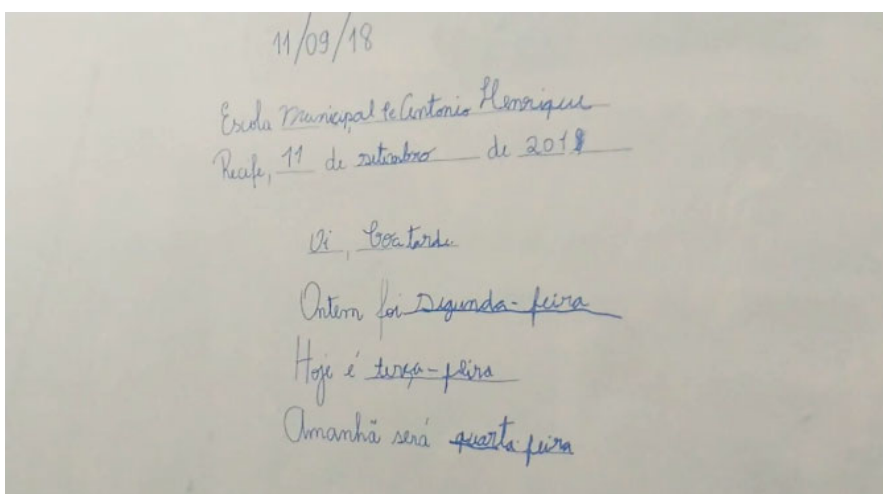 11/09/18
Escola Municipal Pe Antonio Henrique
Recife, 11 de setembro de 2018
Oi, boa tarde
Ontem foi Segunda-feira
Hoje é terça-feira
Amanhã será quarta feira